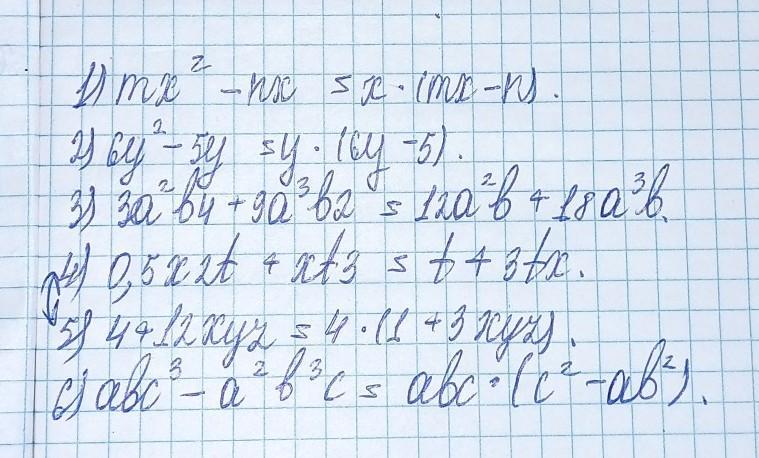 1) mx² - nx = x · (mx - n).
2) 6y² - 5y = y · (6y - 5).
3) 3a²b4 + 9a³b2 = 12a²b + 18a³b.
4) 0,5x2t + xt3 = t + 3tx.
5) 4 + 12xyz = 4 · (1 + 3xyz).
6) abc³ - a²b³c = abc · (c² - ab²).